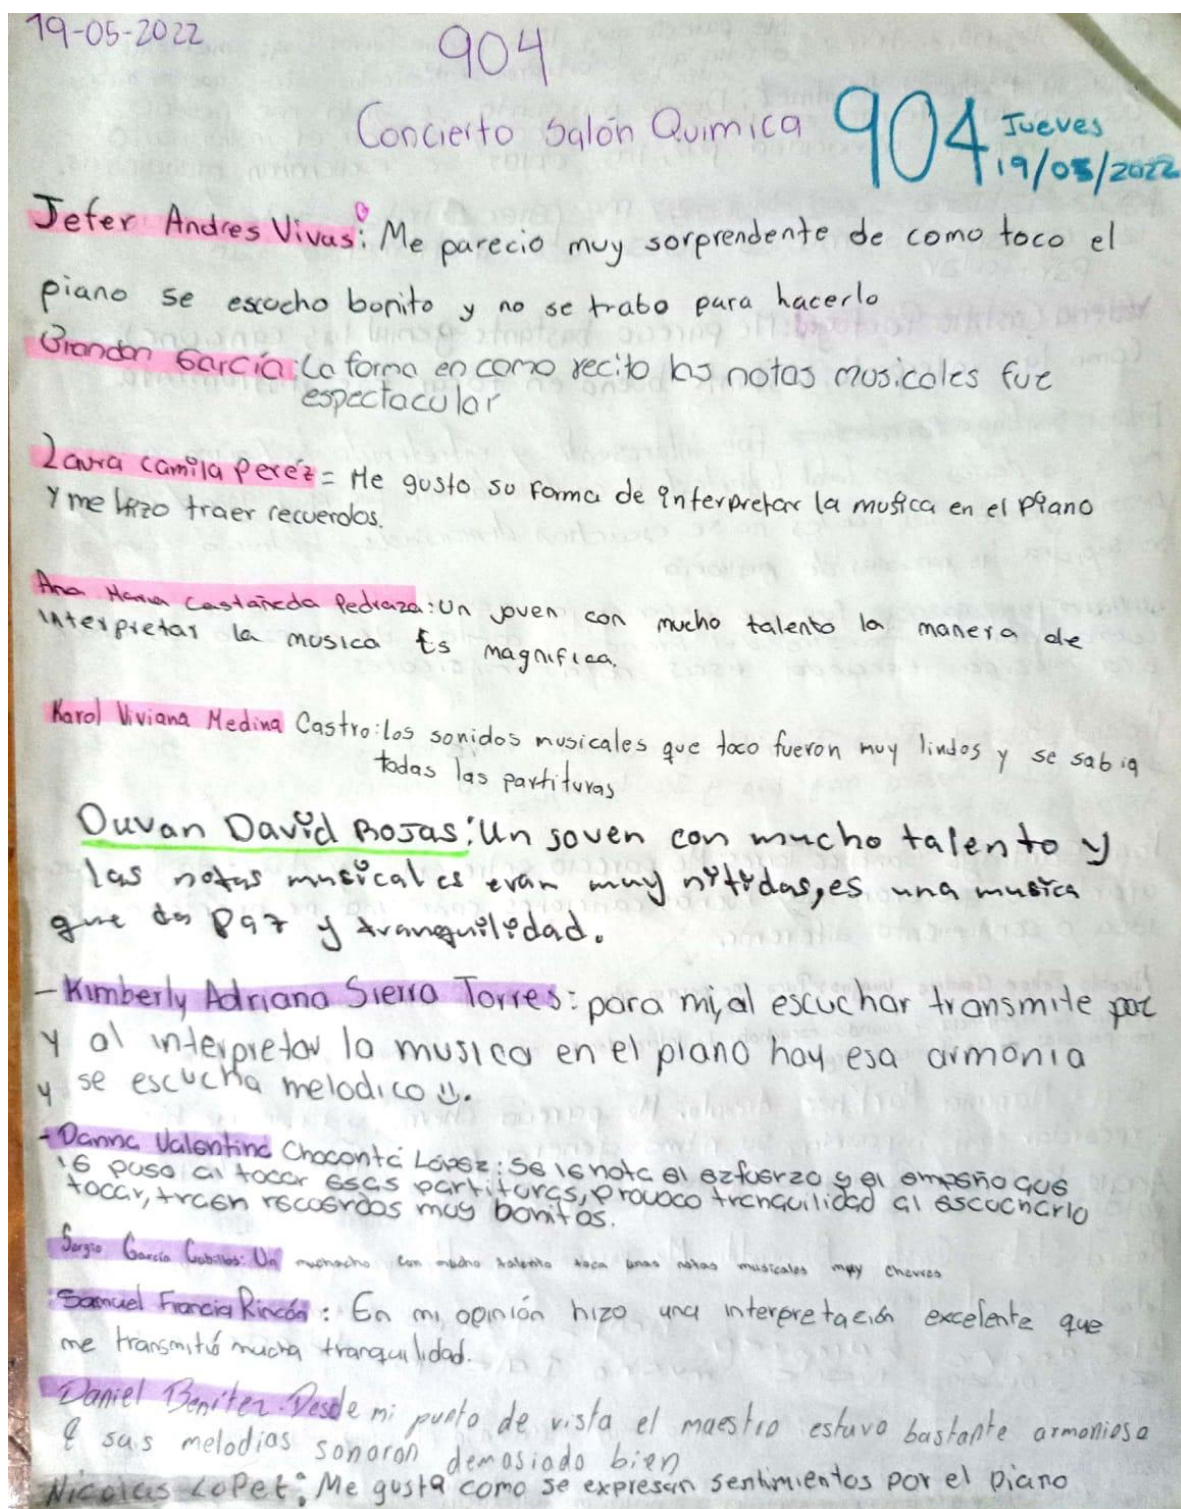 19-05-2022
904
Concierto Salón Quimica 904 Jueves
19/05/2022
Jefer Andres Vivas: Me parecio muy sorprendente de como toco el
piano se escucho bonito y no se trabo para hacerlo
Brandon García: La forma en como recito las notas musicales fue
espectacular
Laura camila Peréz = Me gusto su forma de interpretar la musica en el piano
y me hizo traer recuerdos.
Ana Maria Castañeda Pedraza: Un joven con mucho talento la manera de
interpretar la musica Es magnifica.
Karol Viviana Medina Castro: los sonidos musicales que toco fueron muy lindos y se sabia
todas las partituras
Duvan David Rojas: Un joven con mucho talento y
las notas musicales eran muy nitidas, es una musica
que da paz y tranquilidad.
- Kimberly Adriana Sierra Torres: para mi, al escuchar transmite paz
y al interpretar la musica en el piano hay esa armonia
y se escucha melodico.
- Danna Valentina Chocontá López: Se le nota el ezfuerzo y el empeño que
le puso al tocar esas partituras, provoco tranquilidad al escucharlo
tocar, traen recuerdos muy bonitos.
Sergio García Cubillos: Un muchacho con mucho talento toca unas notas musicales muy chevres
Samuel Francia Rincón: En mi opinión hizo una interpretación excelente que
me transmitió mucha tranquilidad.
Daniel Benitez. Desde mi punto de vista el maestro estuvo bastante armonioso
& sus melodias sonaron demasiado bien
Nicolas LoPet: Me gusta como se expresan sentimientos por el piano